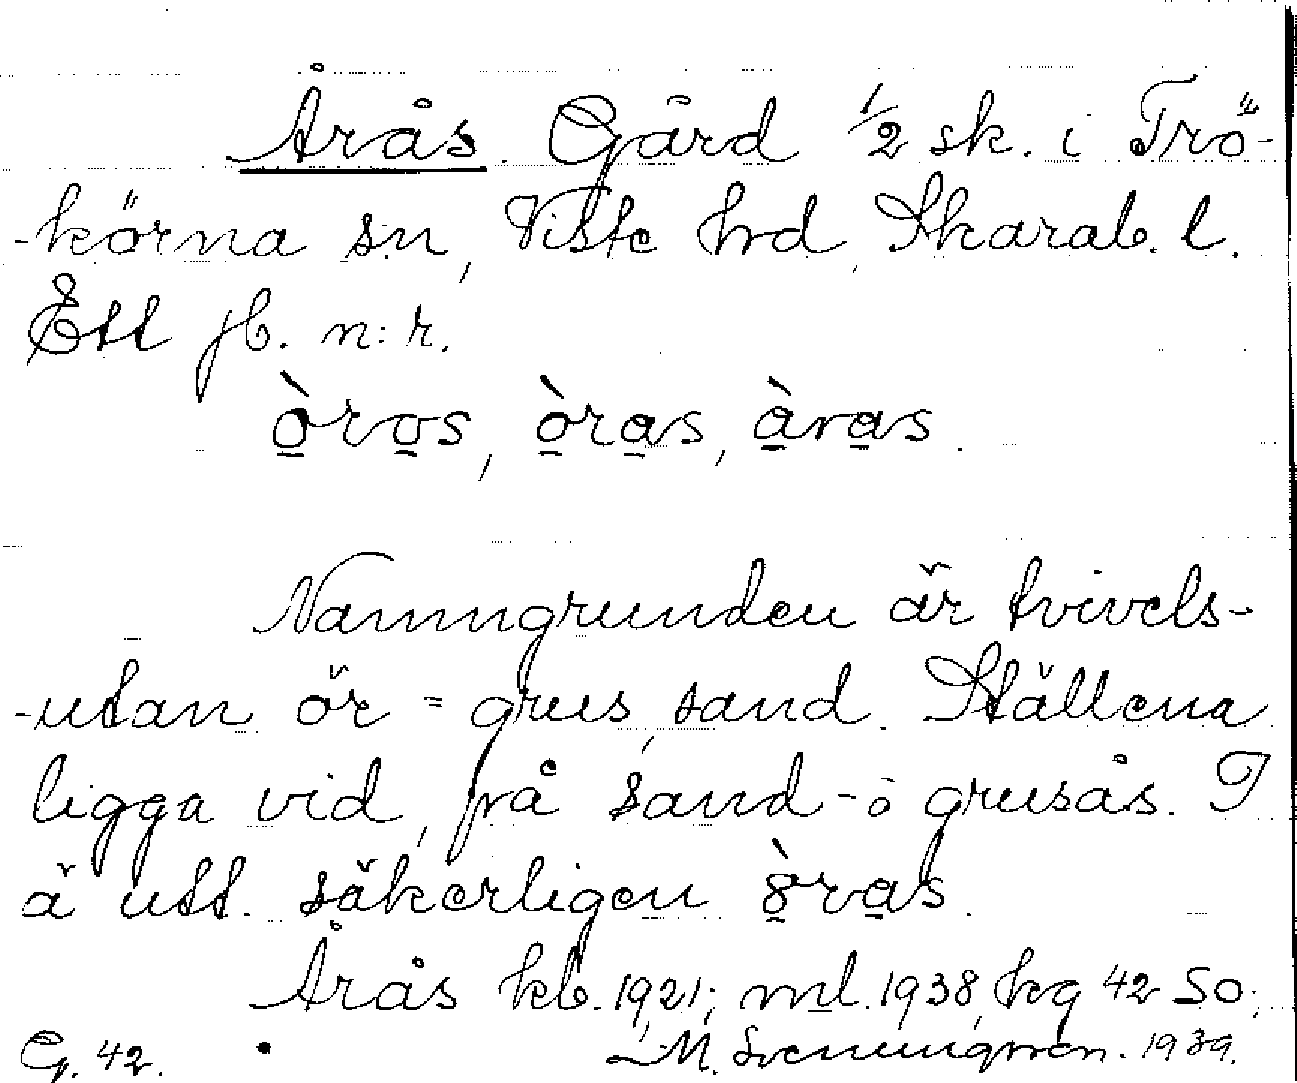 Årås. Gård 1/2 sk. i Trö-
-körna sn, Viste hrd, Skarab. l.
Ett jb. n:r.
òros, òras, àras.
Namngrunden är tvivels-
-utan ör = grus, sand. Ställena
ligga vid, på sand- o grusås. I
ä utt. säkerligen òras.
Årås kb. 1921; ml. 1938, hkg 42 SO;
G. 42. M. Svenungsson. 1939.